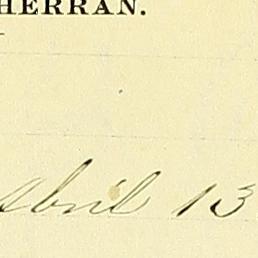 HERRAN.
Abril 13